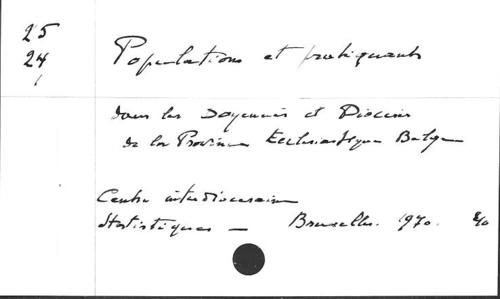 25
24
Populations et pratiquants
dans les Doyennés et Diocèses
de la Province Ecclésiastique Belge
Centre interdiocésain
Statistiques — Bruxelles. 1970.